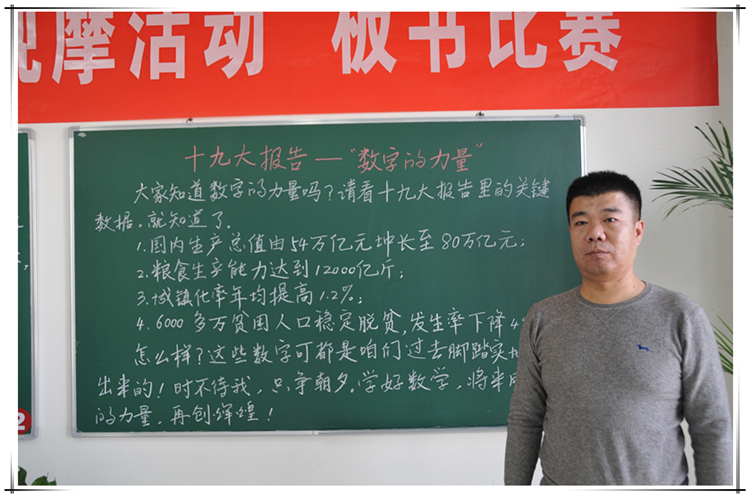 摩活动 板书比赛
十九大报告—“数字的力量”
大家知道数字的力量吗？请看十九大报告里的关键
数据，就知道了.
1.国内生产总值由54万亿元增长至80万亿元；
2.粮食生产能力达到12000亿斤；
3.城镇化率年均提高1.2%；
4.6000多万贫困人口稳定脱贫,发生率下降4
怎么样？这些数字可都是咱们过去脚踏实
出来的！时不待我，只争朝夕。学好数学，将来
的力量，再创辉煌！
2